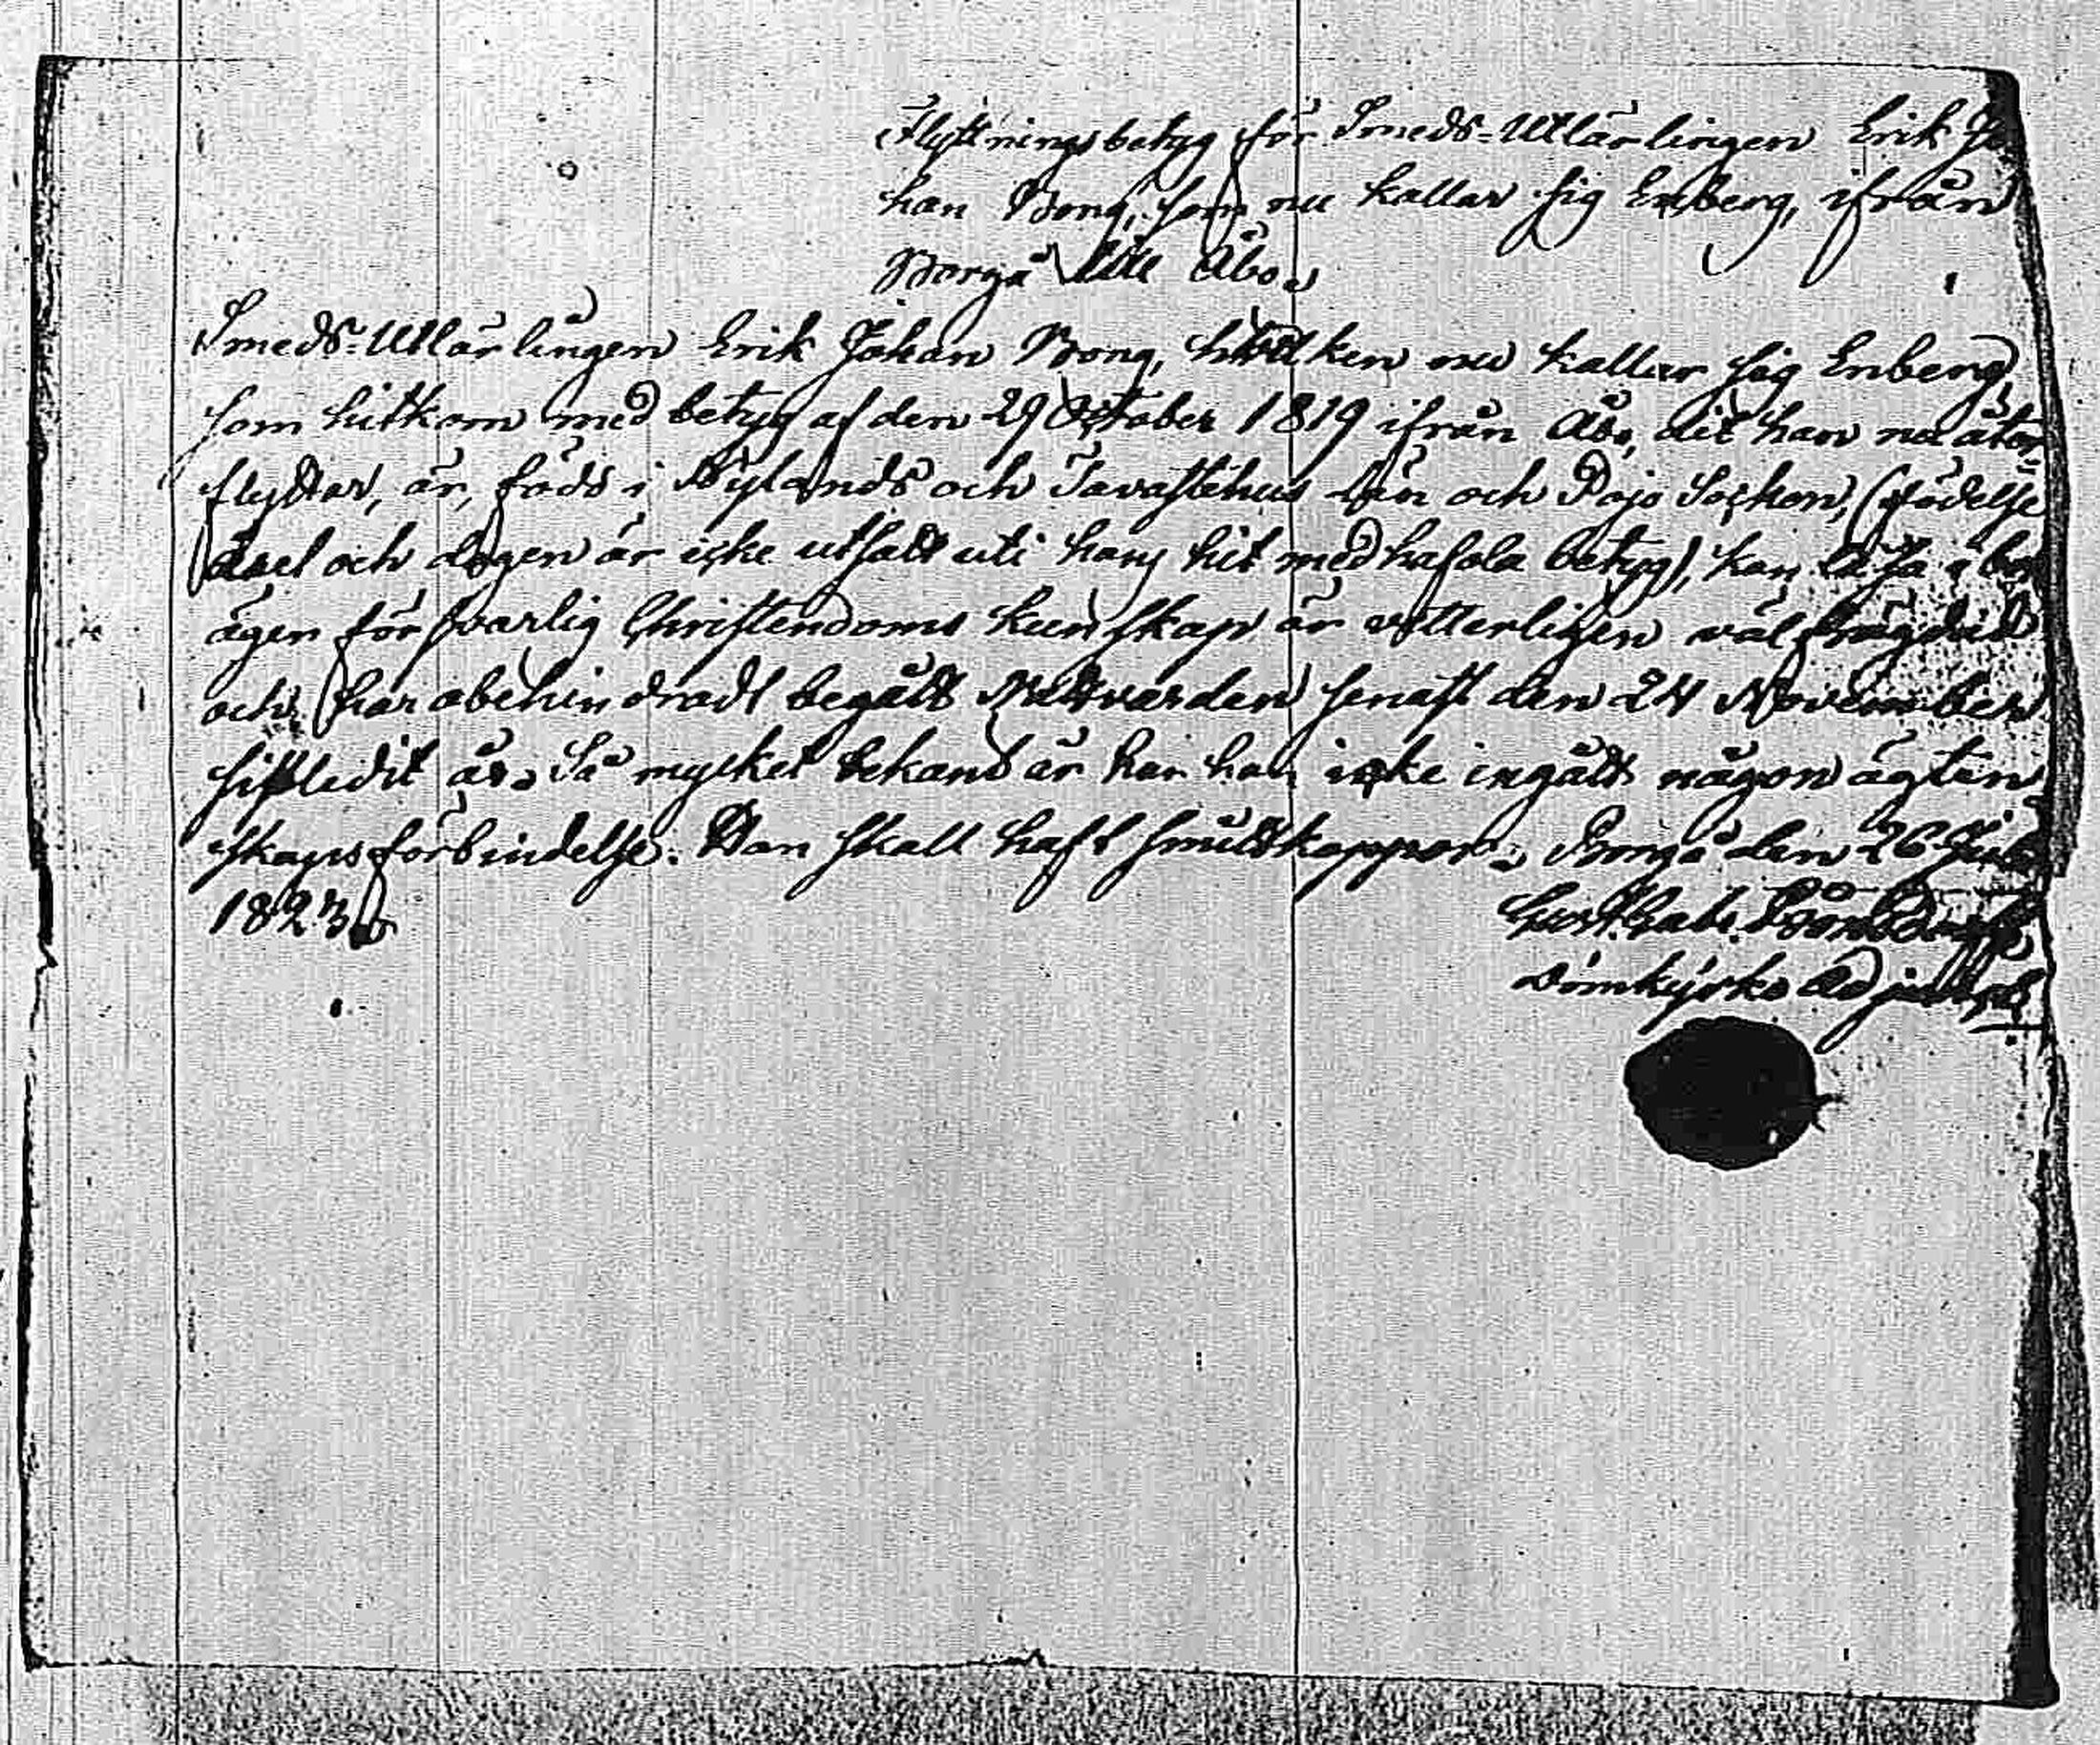 Flyttningsbetyg för Smeds-Utlärlingen Erik Jo
han Bong, som nu kallar sig Enberg, ifrån
Borgå till Åbo.
Smeds-Utlärlingen Erik Johan Bong, hvilken nu kallar sig Enberg,
som hitkom med betyg af den 29 October 1819 ifrån Åbo, dit han nu åter
flyttar, är, född i Nylands och Tavastehus Län och Pojo Sochen, (födelse
året och dagen är icke utsatt uti hans hit medhafda betyg), kan läsa i bok
ägen försvarlig Christendoms kunskap är vitterligen välfrägdad
och har obehindradt begått Nattvarden senast den 24 November
sistledit år. Så mycket bekant är har han icke ingått någon ägten
skapsförbindelse. Han skall haft smittkoppor. Borgå den 26
1823
Domkyrko Adjunct